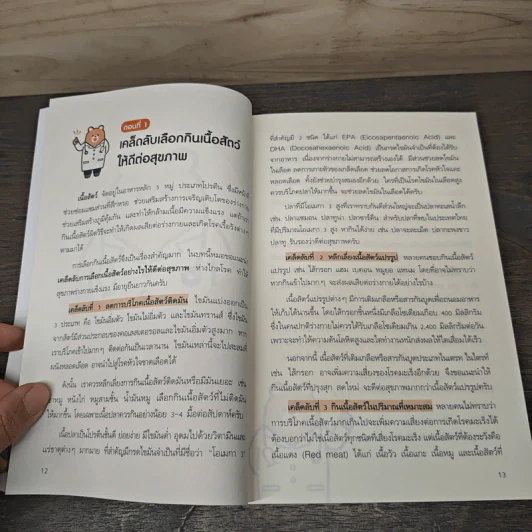 ตอนที่ 1
เคล็ดลับเลือกกินเนื้อสัตว์
ให้ดีต่อสุขภาพ
เนื้อสัตว์ จัดอยู่ในอาหารหลัก 5 หมู่ ประเภทโปรตีน ซึ่งมีหน้าที่
ช่วยซ่อมแซมส่วนที่สึกหรอ ช่วยเสริมสร้างการเจริญเติบโตของร่างกาย
ช่วยเสริมสร้างภูมิคุ้มกัน และทำให้กล้ามเนื้อมีความแข็งแรง แต่ถ้า
กินเนื้อสัตว์ผิดวิธีจะทำให้เกิดผลเสียต่อร่างกายและเกิดโรคเรื้อรังต่างๆ
ตามมา
การเลือกกินเนื้อสัตว์จึงเป็นเรื่องสำคัญมาก ในบทนี้หมอขอแนะนำ
เคล็ดลับการเลือกกินเนื้อสัตว์อย่างไรให้ดีต่อสุขภาพ ห่างไกลโรค ทำให้
สุขภาพร่างกายแข็งแรง มีอายุยืนยาวกันครับ
เคล็ดลับที่ 1 ลดการบริโภคเนื้อสัตว์ติดมัน ไขมันแบ่งออกเป็น
3 ประเภท คือ ไขมันอิ่มตัว ไขมันไม่อิ่มตัว และไขมันทรานส์ ซึ่งไขมัน
จากสัตว์มีส่วนประกอบของคอเลสเตอรอลและไขมันอิ่มตัวสูงมาก หาก
เราบริโภคเข้าไปมากๆ ติดต่อกันเป็นเวลานาน ไขมันเหล่านี้จะไปสะสมที่
ผนังหลอดเลือด อาจนำไปสู่โรคหัวใจขาดเลือดได้
ดังนั้น เราควรหลีกเลี่ยงการกินเนื้อสัตว์ติดมันหรือมีมันเยอะ เช่น
ขาหมู หนังไก่ หมูสามชั้น น้ำมันหมู เลือกกินเนื้อสัตว์ที่ไม่ติดมัน
ให้มากขึ้น โดยเฉพาะเนื้อปลาควรกินอย่างน้อย 3-4 มื้อต่อสัปดาห์ครับ
เนื้อปลาเป็นโปรตีนชั้นดี ย่อยง่าย มีไขมันต่ำ อุดมไปด้วยวิตามินและ
แร่ธาตุต่างๆ มากมาย ที่สำคัญมีกรดไขมันจำเป็นที่มีชื่อว่า "โอเมกา 3"
12
ที่สำคัญมี 2 ชนิด ได้แก่ EPA (Eicosapentaenoic Acid) และ
DHA (Docosahexaenoic Acid) เป็นกรดไขมันจำเป็นที่ต้องได้รับ
จากอาหาร เนื่องจากร่างกายไม่สามารถสร้างเองได้ มีส่วนช่วยลดไขมัน
ในเลือด ลดการเกาะตัวของเกล็ดเลือด ช่วยลดโอกาสการเกิดโรคหัวใจและ
หลอดเลือด ทั้งยังช่วยบำรุงสมองอีกด้วย ใครที่เป็นโรคไขมันในเลือดสูง
ควรบริโภคปลาให้มากขึ้น จะช่วยลดไขมันในเลือดได้ครับ
ปลาที่มีโอเมกา 3 สูงที่เราทราบกันดีส่วนใหญ่จะเป็นปลาทะเลน้ำลึก
เช่น ปลาแซมอน ปลาทูน่า ปลาซาร์ดีน สำหรับปลาที่พบในประเทศไทย
ที่มีปริมาณโอเมกา 3 สูง หากินได้ง่าย เช่น ปลาจะละเม็ด ปลากะพงขาว
ปลาทู รับรองว่าดีต่อสุขภาพครับ
เคล็ดลับที่ 2 หลีกเลี่ยงเนื้อสัตว์แปรรูป หลายคนชอบกินเนื้อสัตว์
แปรรูป เช่น ไส้กรอก แฮม เบคอน หมูยอ แหนม โดยที่อาจไม่ทราบว่า
หากกินเข้าไปมากๆ จะส่งผลเสียต่อร่างกายได้อย่างไรบ้าง
เนื้อสัตว์แปรรูปต่างๆ มีการเติมเกลือหรือสารกันบูดเพื่อถนอมอาหาร
ให้เก็บได้นานขึ้น โดยไส้กรอกชิ้นหนึ่งมีเกลือโซเดียมเกือบ 400 มิลลิกรัม
ซึ่งในคนปกติร่างกายไม่ควรได้รับเกลือโซเดียมเกิน 2,400 มิลลิกรัมต่อวัน
เพราะจะทำให้ความดันโลหิตสูงและไตทำงานหนักส่งผลให้ไตเสื่อมได้เร็ว
นอกจากนี้ เนื้อสัตว์ที่เติมเกลือหรือสารกันบูดประเภทไนเตรต ไนไทรต์
เช่น ไส้กรอก อาจเพิ่มความเสี่ยงของโรคมะเร็งอีกด้วย จึงขอแนะนำให้
กินเนื้อสัตว์ที่ปรุงสุก สดใหม่ จะดีต่อสุขภาพมากกว่าเนื้อสัตว์แปรรูปครับ
เคล็ดลับที่ 3 กินเนื้อสัตว์ในปริมาณที่เหมาะสม หลายคนไม่ทราบว่า
การบริโภคเนื้อสัตว์มากเกินไปจะเพิ่มความเสี่ยงต่อการเกิดโรคมะเร็งได้
ต้องบอกว่าไม่ใช่เนื้อสัตว์ทุกชนิดที่เสี่ยงโรคมะเร็ง แต่เนื้อสัตว์ที่ต้องระวังคือ
เนื้อแดง (Red meat) ได้แก่ เนื้อวัว เนื้อแกะ เนื้อหมู และเนื้อสัตว์ที่
13